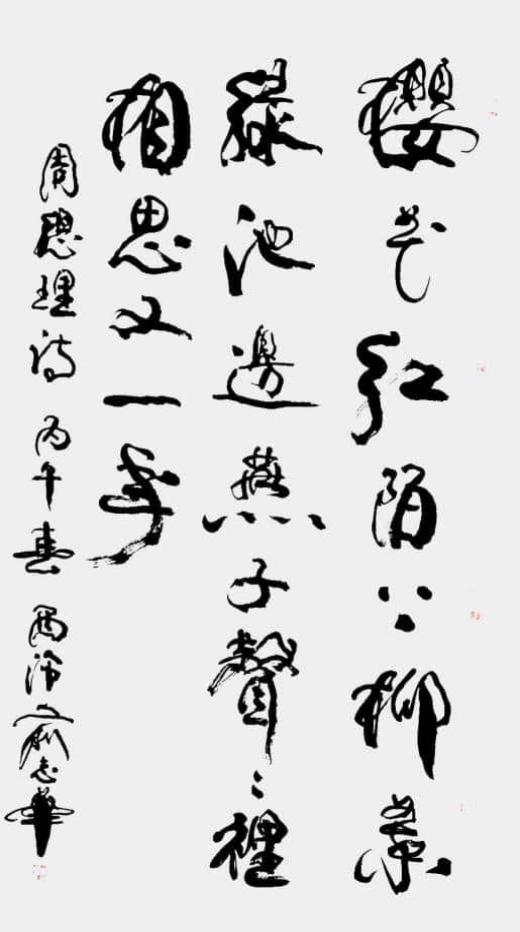 櫻花紅陌上柳葉
綠池邊燕子聲〻裡
相思又一年
周恩理詩 丙午春 西泠 志華